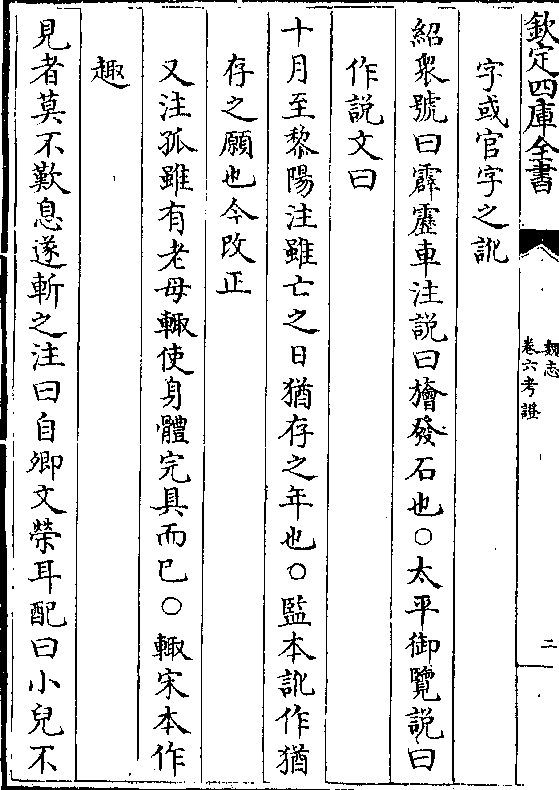 欽定四庫全書
魏志
卷六考證
二
字或官字之訛
紹衆號曰霹靂車注説曰旝發石也○太平御覽説曰
作説文曰
十月至黎陽注雖亡之日猶存之年也○監本訛作猶
存之願也今改正
又注孤雖有老母輙使身體完具而已○輙宋本作
趣
見者莫不歎息遂斬之注曰自卿文榮耳配曰小兒不